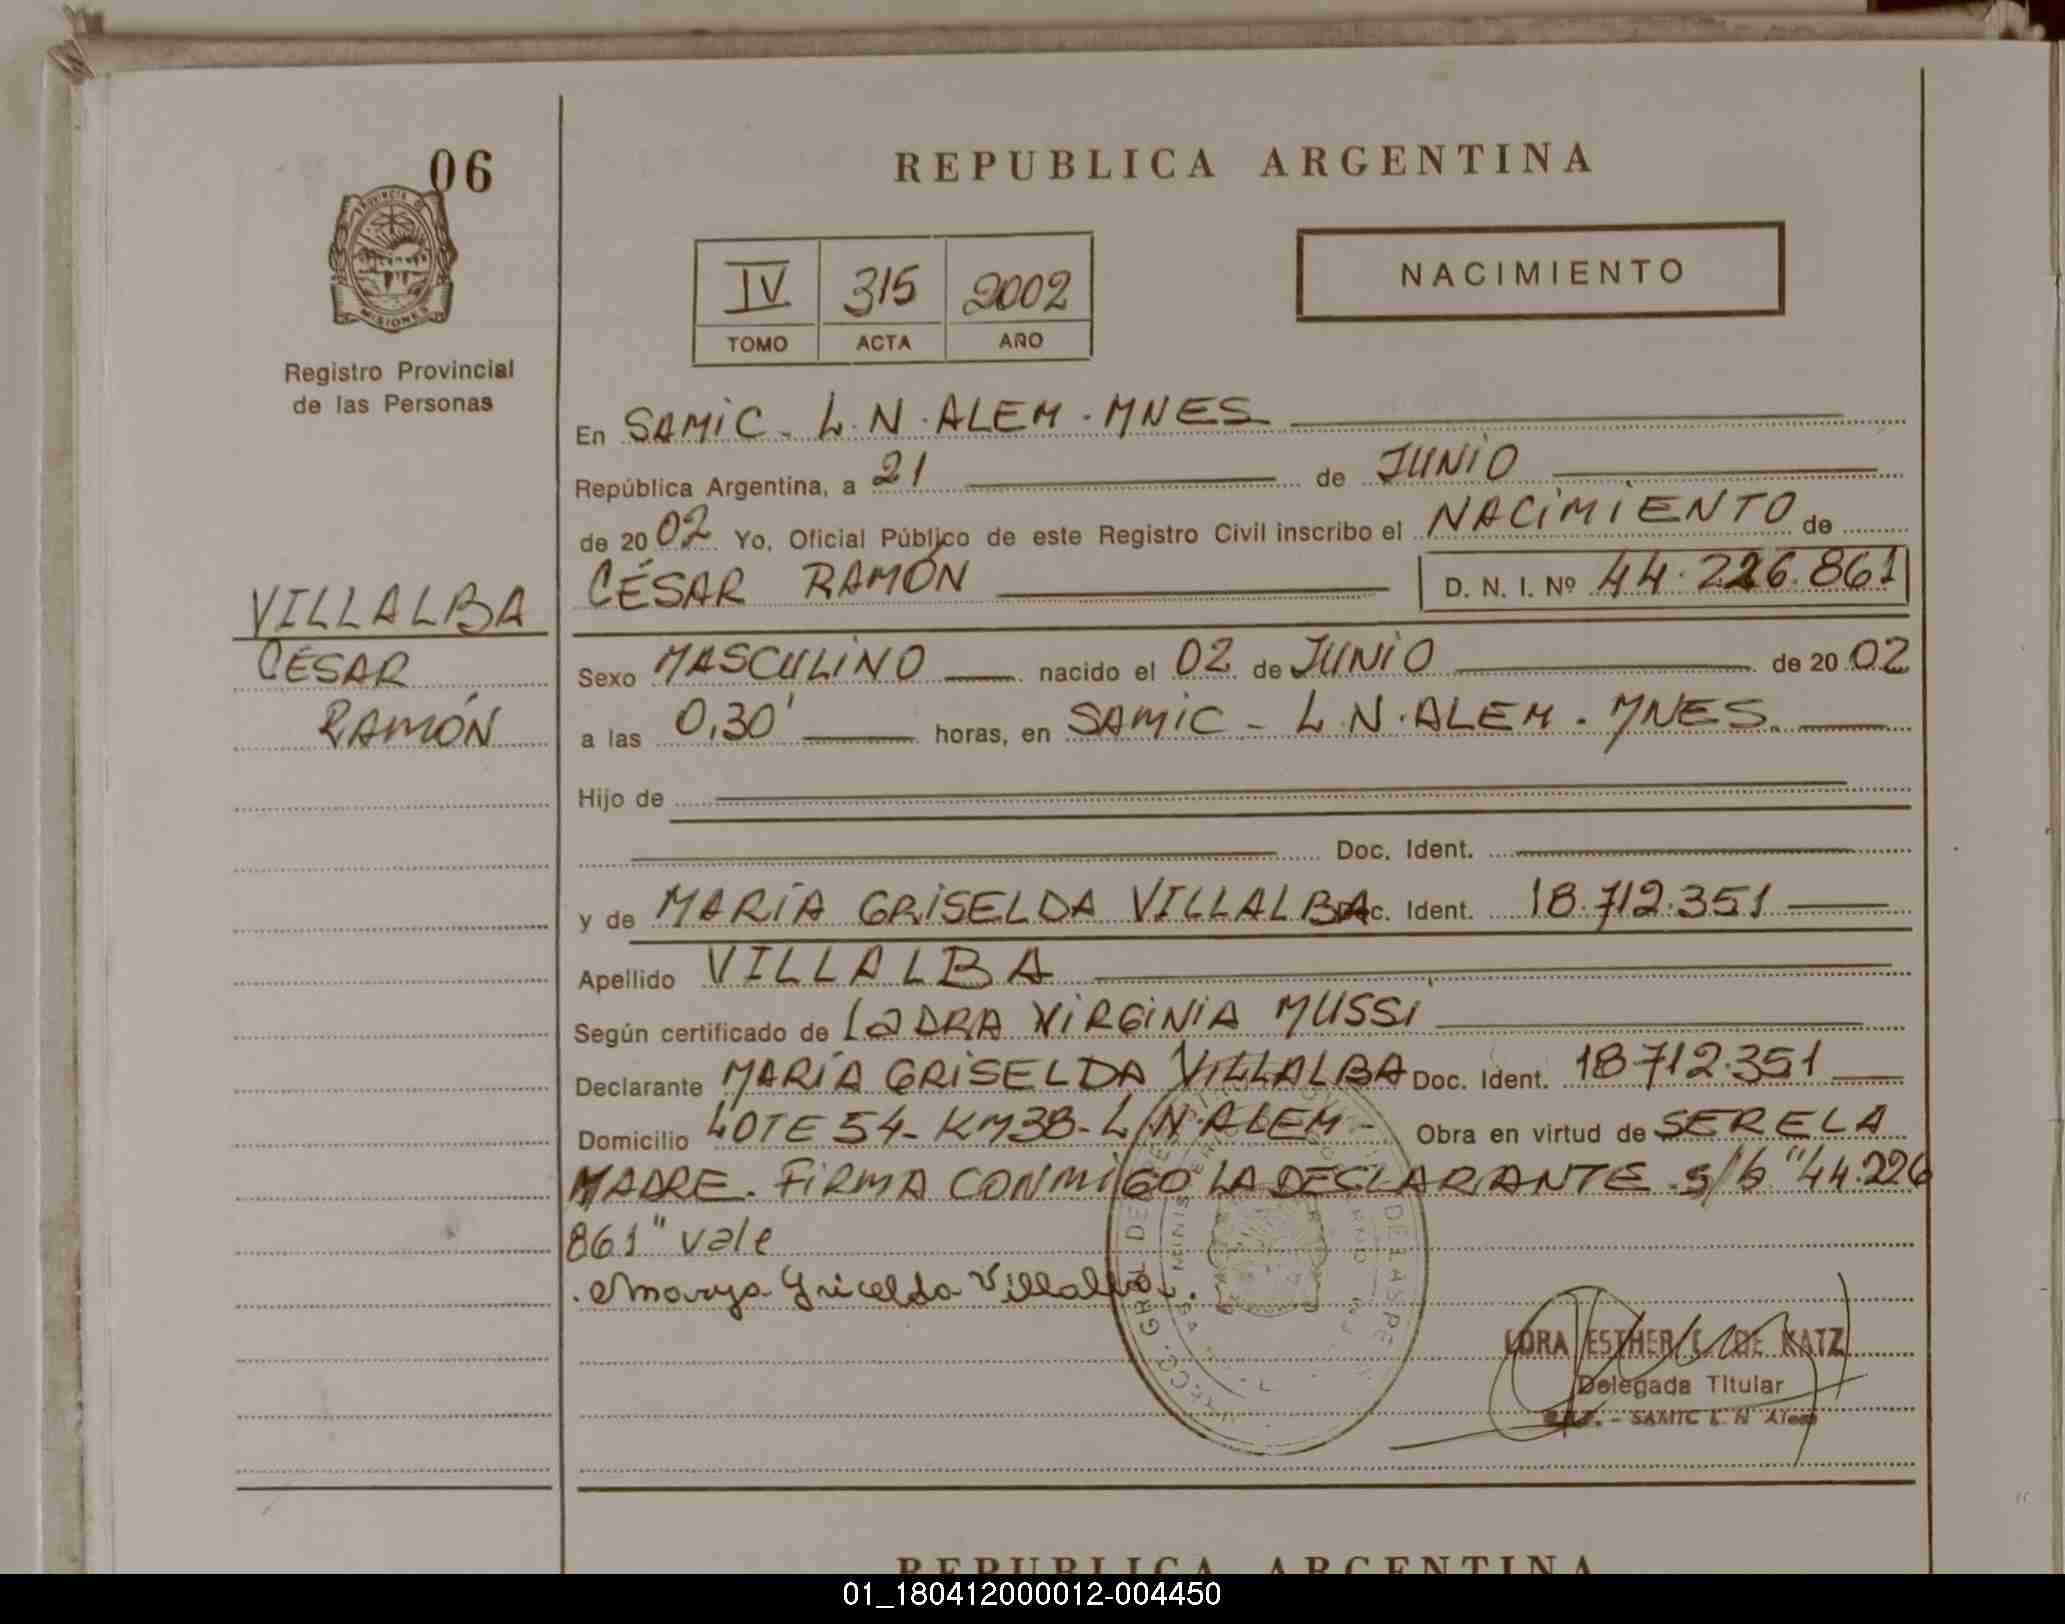 06
REPUBLICA ARGENTINA
PROVINCIA DE
MISIONES
Registro Provincial
de las Personas
IV 315 2002
TOMO ACTA AÑO
NACIMIENTO
En SAMIC - L.N. ALEM - MNES
República Argentina, a 21 de JUNIO
de 20 02 Yo, Oficial Público de este Registro Civil inscribo el NACIMIENTO de
CÉSAR RAMÓN D. N. I. Nº 44.226.861
VILLALBA
CÉSAR
RAMÓN
Sexo MASCULINO nacido el 02 de JUNIO de 20 02
a las 0,30' horas, en SAMIC - L.N. ALEM - MNES.
Hijo de
Doc. Ident.
y de MARÍA GRISELDA VILLALBA Doc. Ident. 18.712.351
Apellido VILLALBA
Según certificado de VIRGINIA MUSSI
Declarante MARÍA GRISELDA VILLALBA Doc. Ident. 18.712.351
Domicilio LOTE 54 - KM38 - L.N. ALEM - Obra en virtud de SER ELA
MADRE. FIRMA CONMIGO LA DECLARANTE. s/b "44.226
861" vale
Marya Gricelda Villalva.
LORA ESTHER DE KATZ
Delegada Titular
SAMIC L. N. Alem
REPUBLICA ARGENTINA
01_180412000012-004450